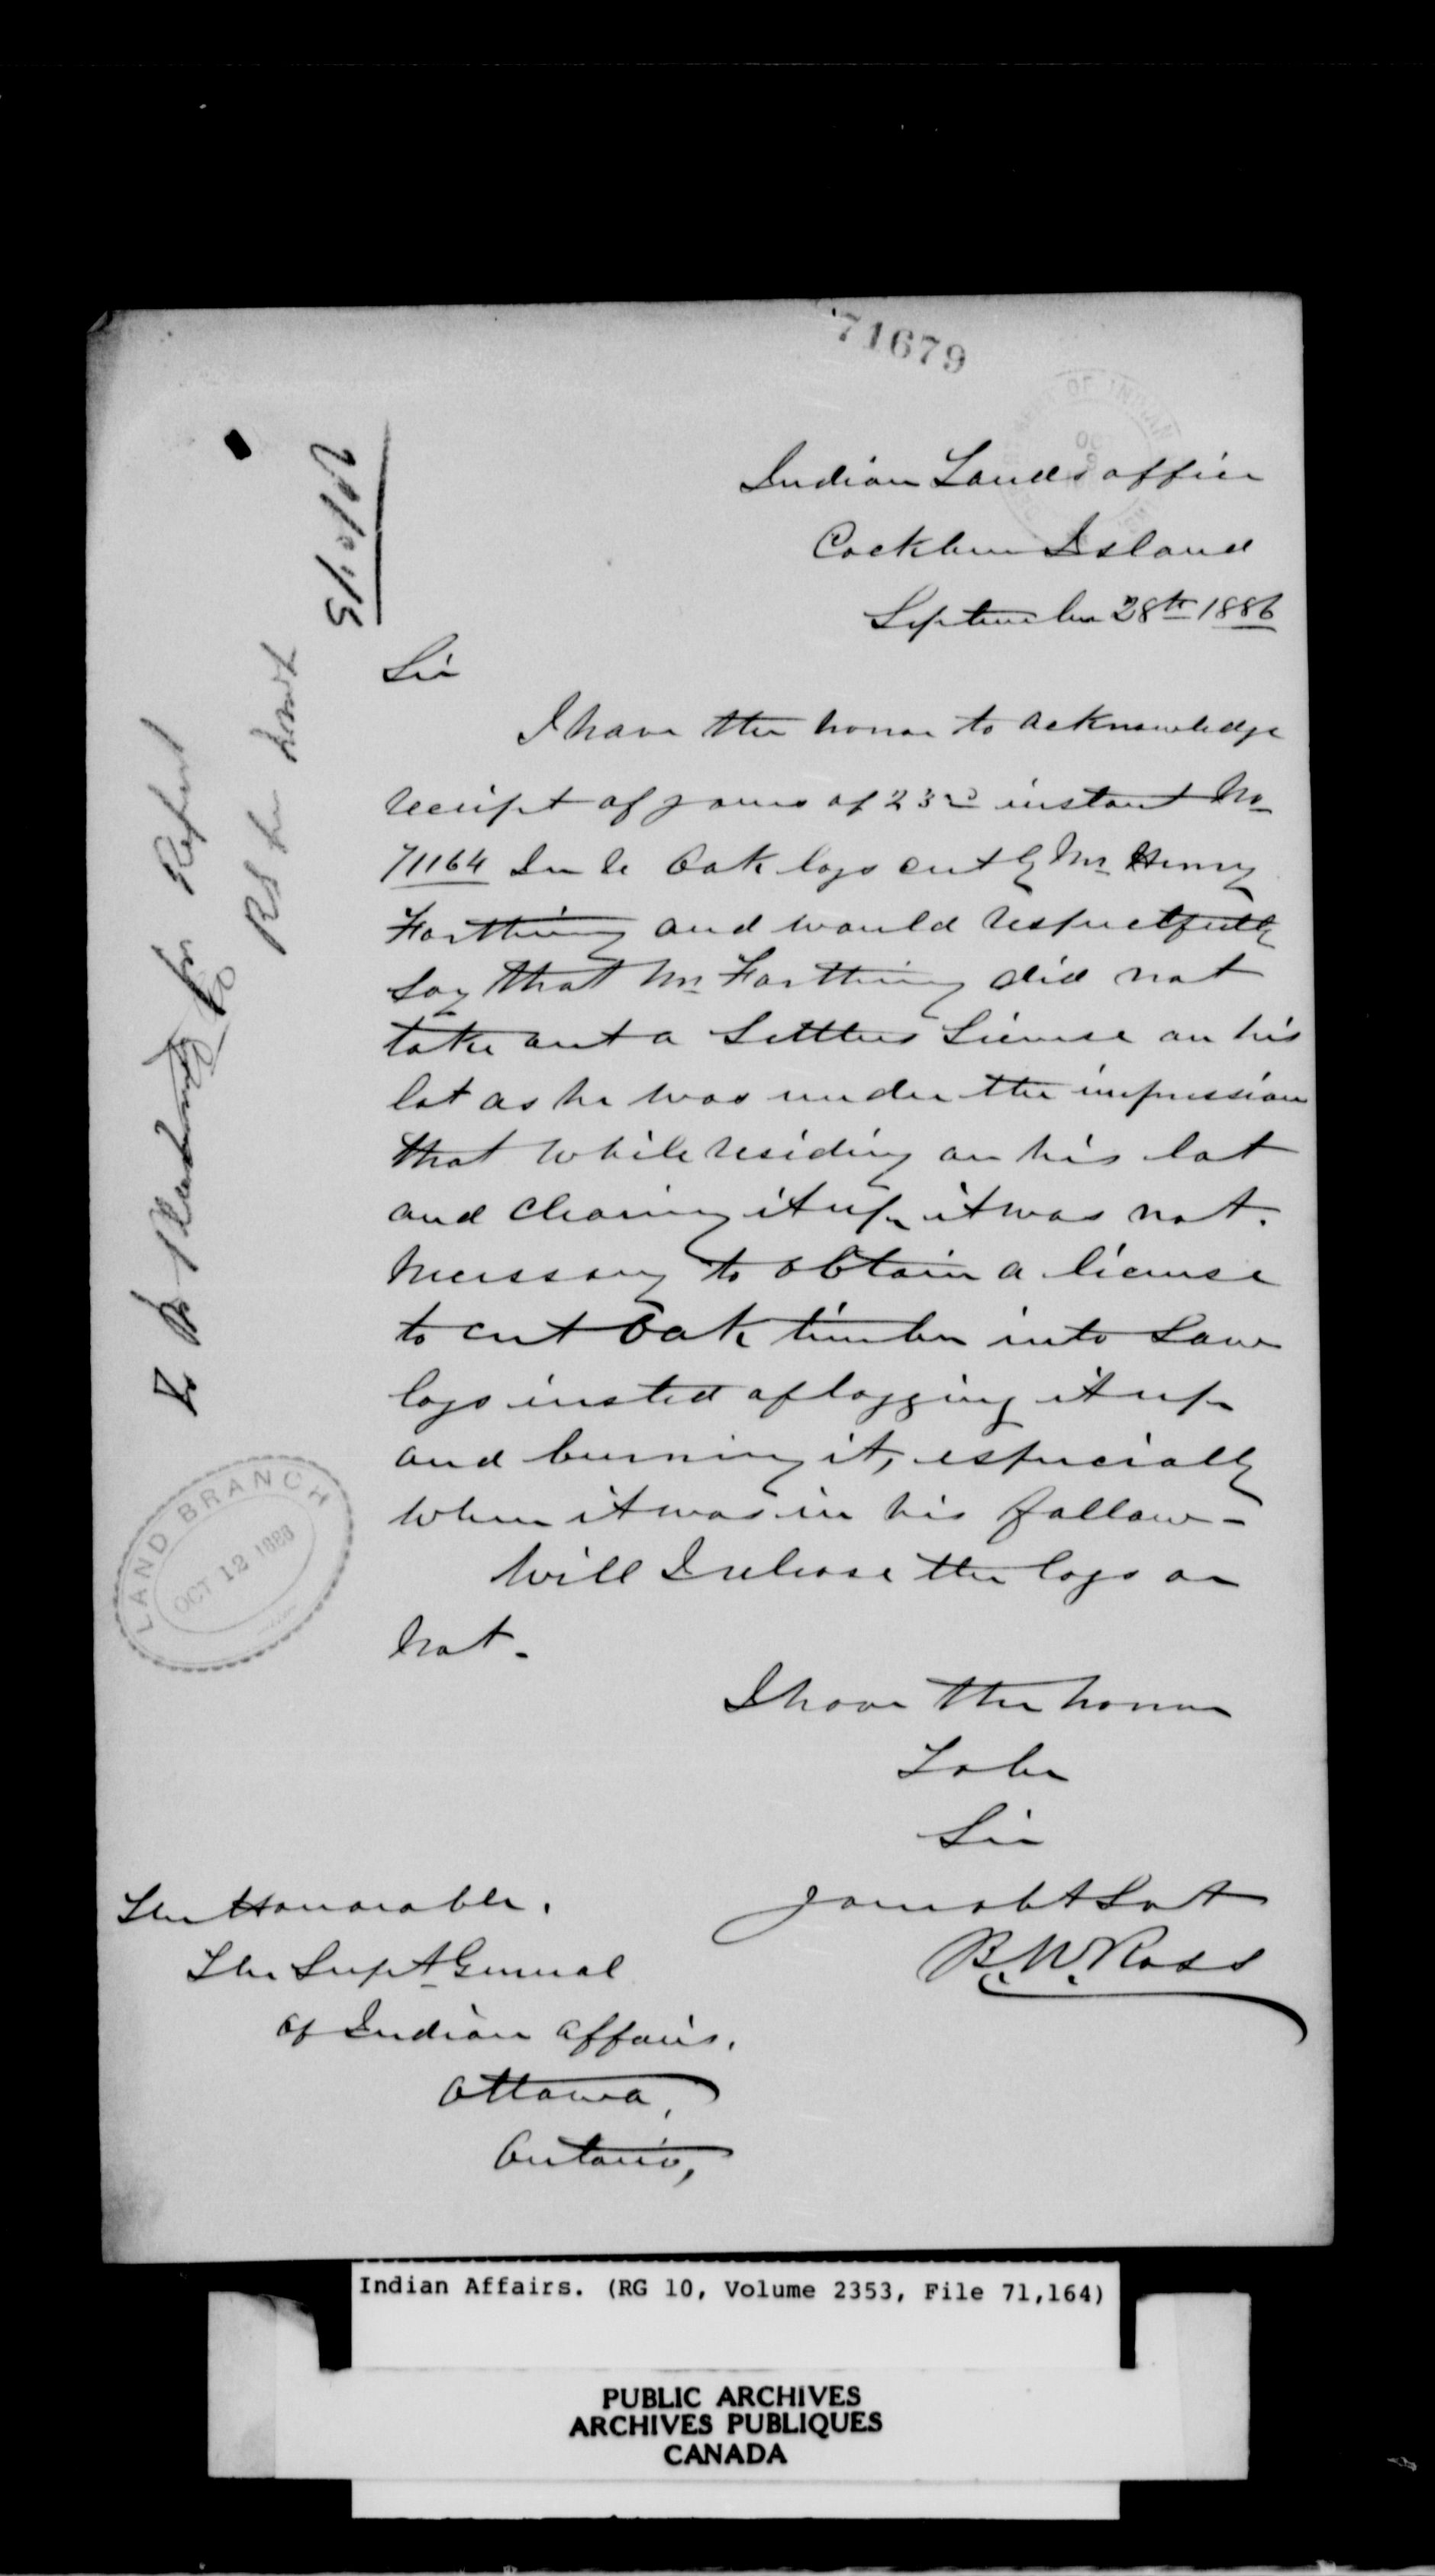 71679
Indian Lands office
Cockburn Island
September 28th 1886
Sir
I have the honor to acknowledge
receipt of yours of 23rd instant No
71164 In re Oak logs cut by Mr Henry
Farthing and would respectfully
say that Mr Farthing did not
take out a Settlers License on his
lot as he was under the impression
that while residing on his lot
and clearing it up it was not.
necessary to obtain a license
to cut Oak timber into Saw
logs insted of logging it up
and burning it, especially
when it was in his fallow -
Will I release the logs or
not.
I have the honor
To be
Sir
your obt Svt
B. W. Ross
The Honorable.
The Supt General
of Indian Affairs.
Ottawa,
Ontario,
for Report
LAND BRANCH
OCT 12 1886
OF INDIAN
Indian Affairs. (RG 10, Volume 2353, File 71,164)
PUBLIC ARCHIVES
ARCHIVES PUBLIQUES
CANADA